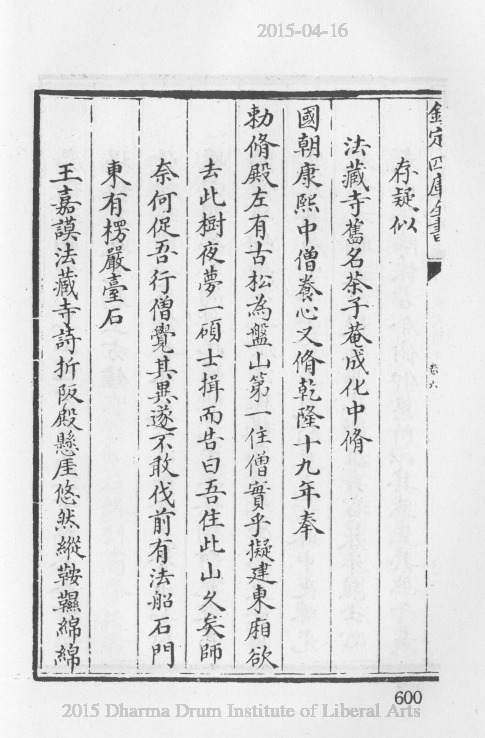 2015-04-16
欽定四庫全書
卷六
存疑似
法藏寺舊名茶子菴成化中脩
國朝康熙中僧養心又脩乾隆十九年奉
勅脩殿左有古松為盤山第一住僧實乎擬建東廂欲
去此樹夜夢一碩士揖而告曰吾住此山久矣師
奈何促吾行僧覺其異遂不敢伐前有法船石門
東有楞嚴臺石
王嘉謨法藏寺詩折阪殿懸厓悠然縱鞍韉綿綿
600
2015 Dharma Drum Institute of Liberal Arts